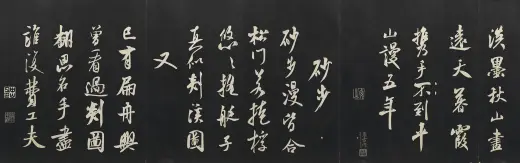 淡墨秋山畫
遠天暮霞
携手不到平
山謾五年
砂步
砂步漫皆合
松門若掩桴
悠悠搖艇子
真似剡溪圖
又
已有扁舟興
曾看過剡圖
翻思名手盡
誰復費工夫